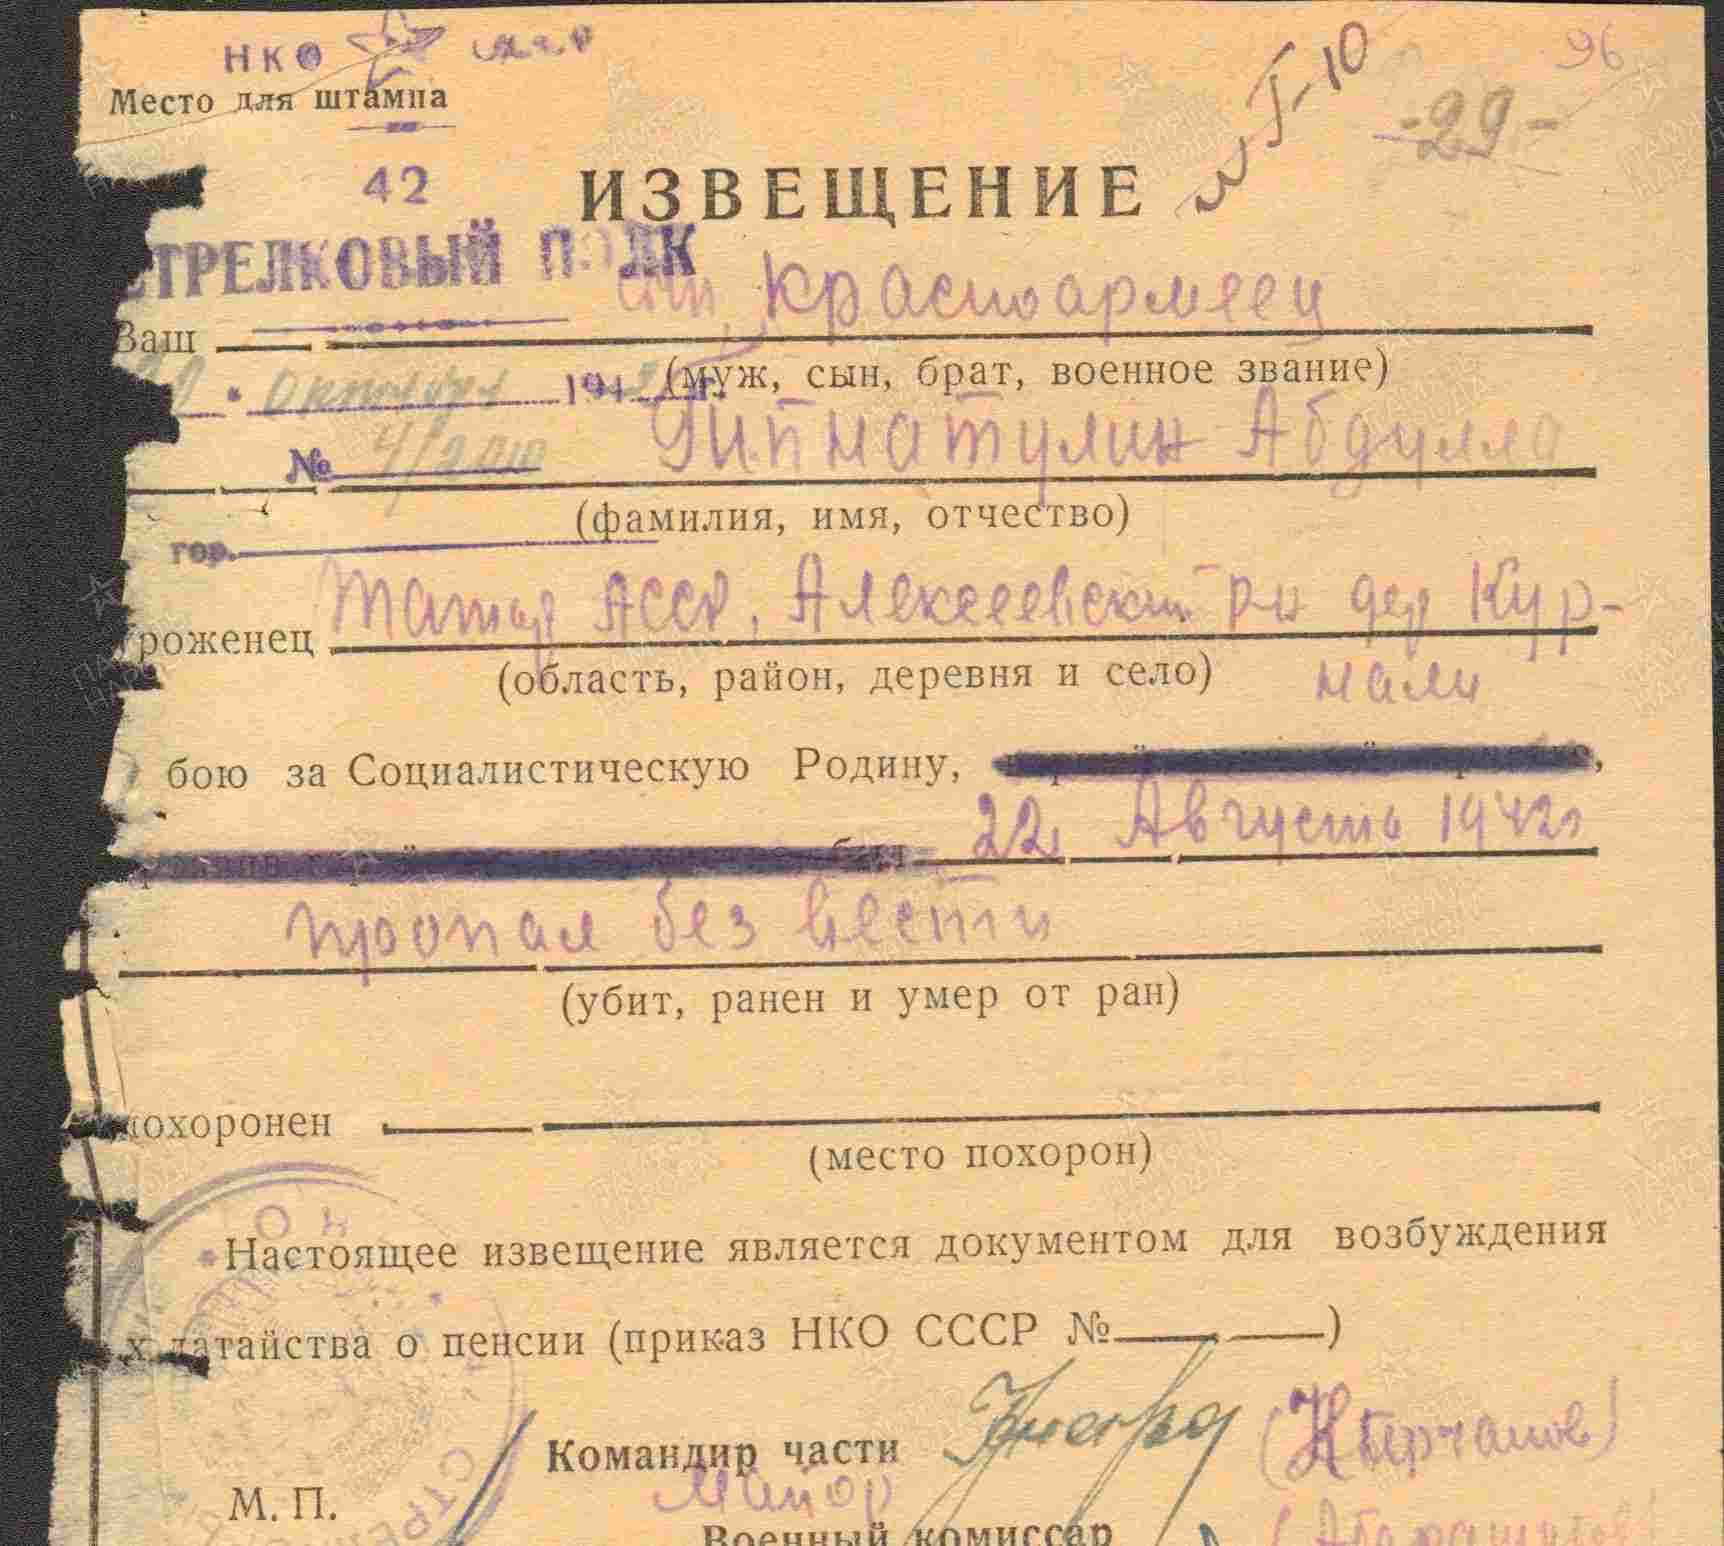 НКО
96
Место для штампа
I-10
-29-
42
ИЗВЕЩЕНИЕ
СТРЕЛКОВЫЙ ПОЛК
Ваш сын красноармеец
(муж, сын, брат, военное звание)
октября 194 г.
Абдулла
№
(фамилия, имя, отчество)
гор.
роженец Татар АССР, Алексеевский р-н дер Кур-
(область, район, деревня и село) нали
бою за Социалистическую Родину,
был 22 Августа 1942г
пропал без вести
(убит, ранен и умер от ран)
похоронен
(место похорон)
Настоящее извещение является документом для возбуждения
ходатайства о пенсии (приказ НКО СССР № )
Командир части
Майор
М. П.
Военный комиссар